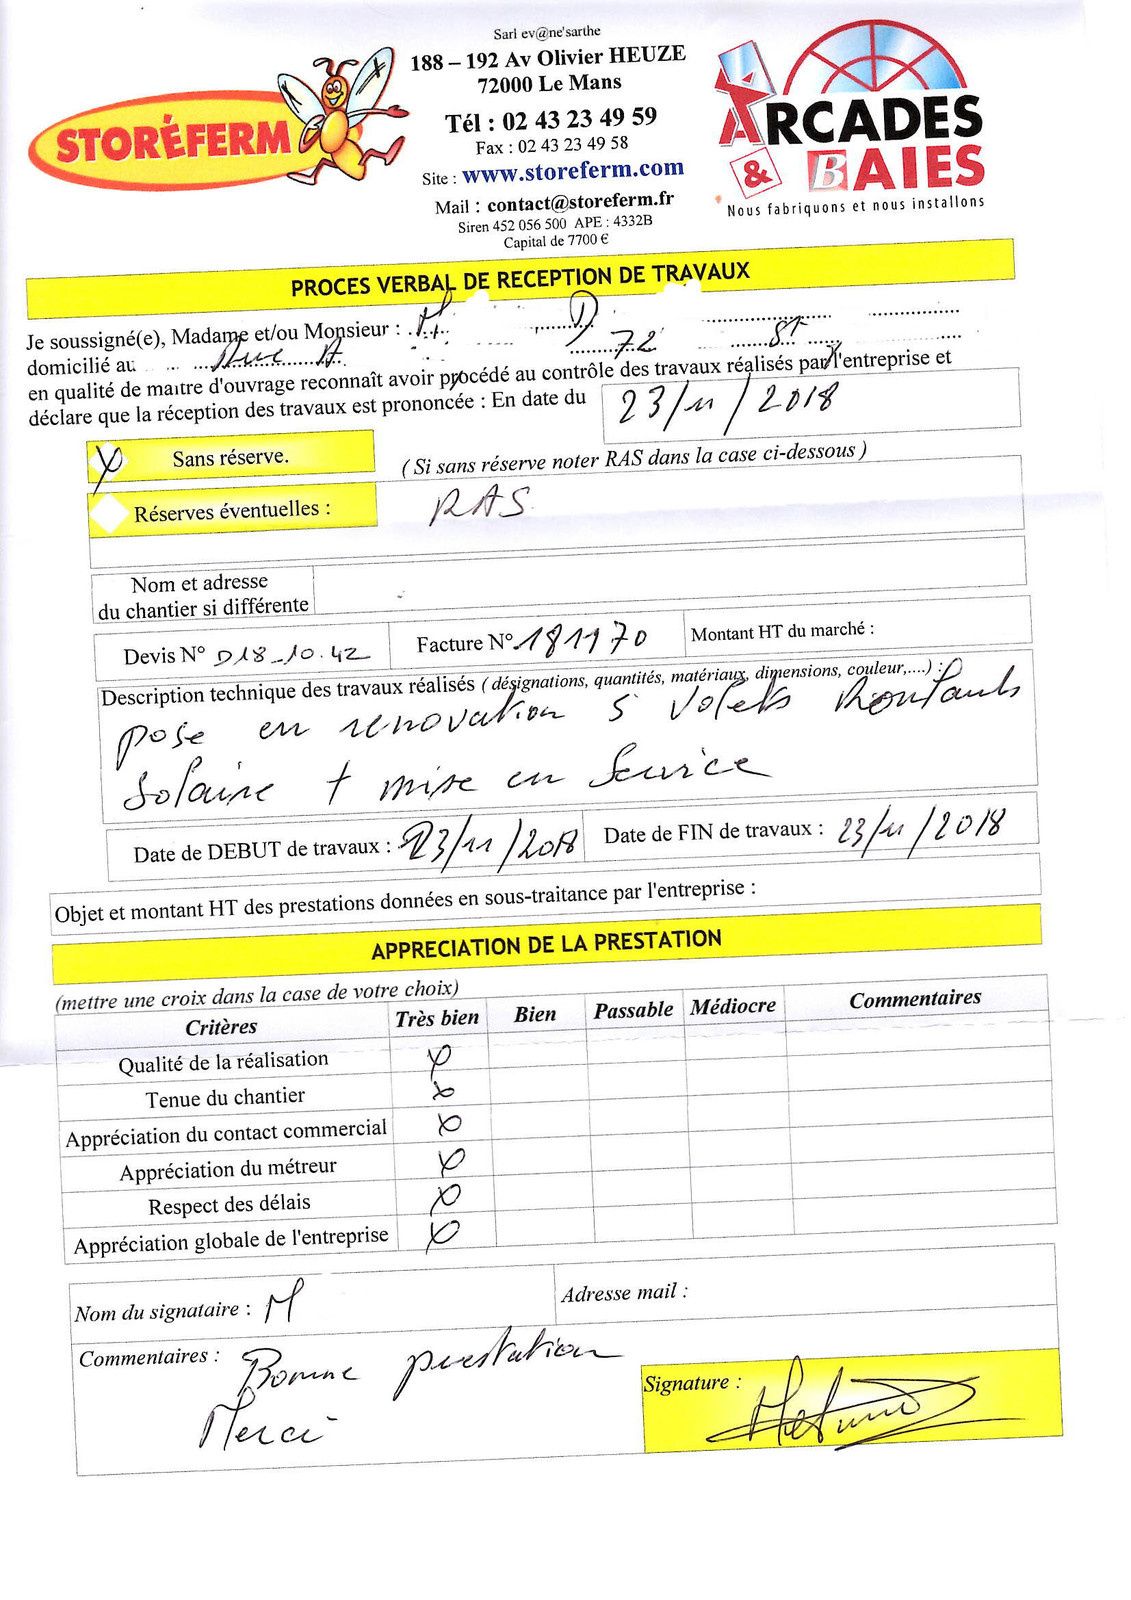 Sarl ev@ne'sarthe
188 – 192 Av Olivier HEUZE
72000 Le Mans
Tél : 02 43 23 49 59
Fax : 02 43 23 49 58
Site : www.storeferm.com
Mail : contact@storeferm.fr
Siren 452 056 500 APE : 4332B
Capital de 7700 €
STORÉFERM
ARCADES
& BAIES
Nous fabriquons et nous installons
PROCES VERBAL DE RECEPTION DE TRAVAUX
Je soussigné(e), Madame et/ou Monsieur : M D
domicilié au Rue A 72 St
en qualité de maître d'ouvrage reconnaît avoir procédé au contrôle des travaux réalisés par l'entreprise et
déclare que la réception des travaux est prononcée : En date du 23/11/2018
X Sans réserve. ( Si sans réserve noter RAS dans la case ci-dessous )
Réserves éventuelles : RAS
Nom et adresse
du chantier si différente
Devis N° D18_10.42 Facture N° 181170 Montant HT du marché :
Description technique des travaux réalisés ( désignations, quantités, matériaux, dimensions, couleur,....) :
pose en renovation 5 volets Roulants
Solaire + mise en Service
Date de DEBUT de travaux : 23/11/2018 Date de FIN de travaux : 23/11/2018
Objet et montant HT des prestations données en sous-traitance par l'entreprise :
APPRECIATION DE LA PRESTATION
(mettre une croix dans la case de votre choix)
Critères Très bien Bien Passable Médiocre Commentaires
Qualité de la réalisation X
Tenue du chantier X
Appréciation du contact commercial X
Appréciation du métreur X
Respect des délais X
Appréciation globale de l'entreprise X
Nom du signataire : M Adresse mail :
Commentaires : Bonne prestation
Merci
Signature :